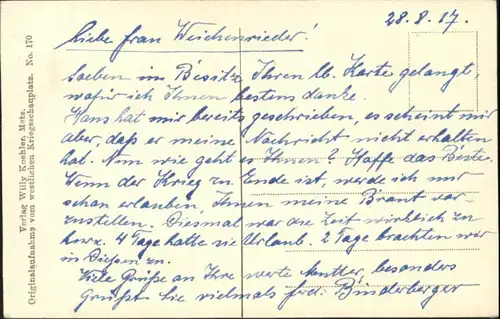 28.8.17.
Liebe Frau Weichenrieder!
Soeben im Besitze Ihrer lb. Karte gelangt,
wofür ich Ihnen bestens danke.
Hans hat mir bereits geschrieben, es scheint mir
aber, daß er meine Nachricht nicht erhalten
hat. Nun wie geht es Ihnen? Hoffe das Beste.
Wenn der Krieg zu Ende ist, werde ich mir
schon erlauben, Ihnen meine Braut vor-
zustellen. Diesmal war die Zeit wirklich zu
kurz. 4 Tage hatte sie Urlaub. 2 Tage brachten wir
in Diessen zu.
Viele Grüße an Ihre werte Mutter, besonders
Grüßt Sie vielmals Ferd. Binderberger
Verlag Willy Koehler, Metz.
Originalaufnahme vom westlichen Kriegsschauplatz. No. 170